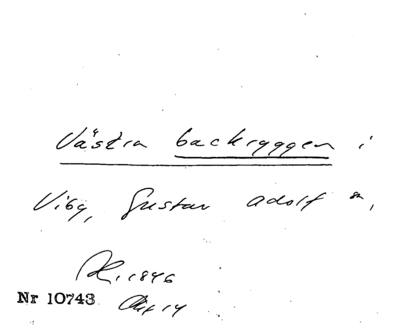 Västra backryggen i
Viby, Gustav Adolf sn,
R. 1846
Nr 10743